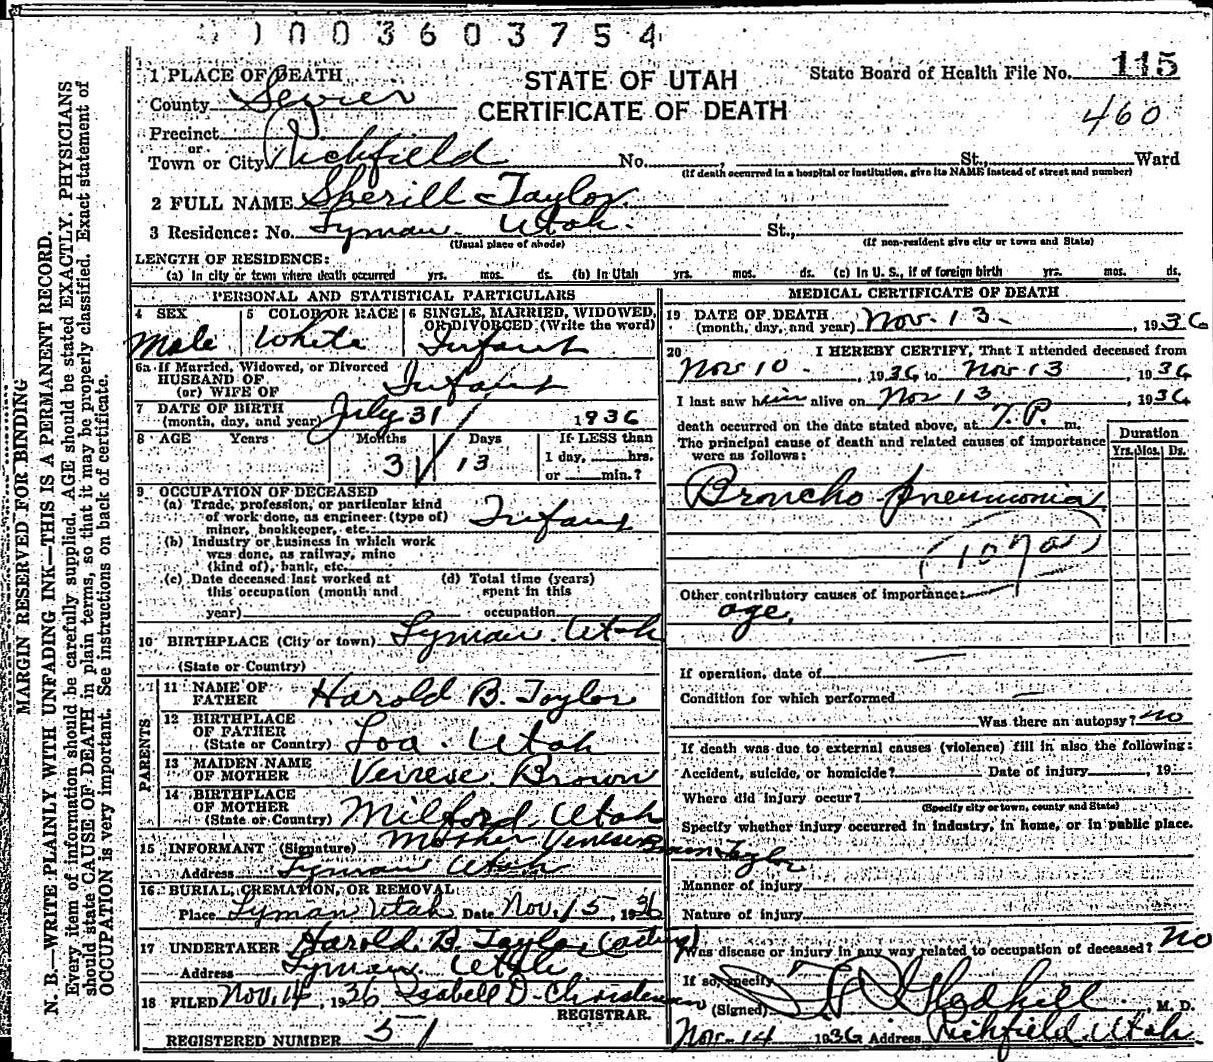 1003603754
STATE OF UTAH
CERTIFICATE OF DEATH
State Board of Health File No. 115
460
1 PLACE OF DEATH
County Sevier
Precinct
or
Town or City Richfield No. , St., Ward
(If death occurred in a hospital or institution, give its NAME instead of street and number)
2 FULL NAME Sherill Taylor
3 Residence: No. Lyman Utah. St.,
(Usual place of abode) (If non-resident give city or town and State)
LENGTH OF RESIDENCE:
(a) In city or town where death occurred yrs. mos. ds. (b) In Utah yrs. mos. ds. (c) In U. S., if of foreign birth yrs. mos. ds.
PERSONAL AND STATISTICAL PARTICULARS
4 SEX Male
5 COLOR OR RACE White
6 SINGLE, MARRIED, WIDOWED, OR DIVORCED (Write the word) Infant
6a If Married, Widowed, or Divorced
HUSBAND OF
(or) WIFE OF Infant
7 DATE OF BIRTH
(month, day, and year) July 31 1936
8 AGE Years Months Days If LESS than
3 13 1 day, hrs.
or min.?
9 OCCUPATION OF DECEASED
(a) Trade, profession, or particular kind
of work done, as engineer (type of)
miner, bookkeeper, etc. Infant
(b) Industry or business in which work
was done, as railway, mine
(kind of), bank, etc.
(c) Date deceased last worked at
this occupation (month and
year)
(d) Total time (years)
spent in this
occupation
10 BIRTHPLACE (City or town) Lyman Utah
(State or Country)
PARENTS
11 NAME OF
FATHER Harold B. Taylor
12 BIRTHPLACE
OF FATHER
(State or Country) Loa. Utah
13 MAIDEN NAME
OF MOTHER Venese Brown
14 BIRTHPLACE
OF MOTHER
(State or Country) Milford Utah
15 INFORMANT (Signature) Mother Venese Brown Taylor
Address Lyman Utah
16 BURIAL, CREMATION, OR REMOVAL
Place Lyman Utah Date Nov. 15, 1936
17 UNDERTAKER Harold B. Taylor (acting)
Address Lyman Utah
18 FILED Nov. 14, 1936 Isabell D. Christensen
REGISTRAR.
REGISTERED NUMBER 51
MEDICAL CERTIFICATE OF DEATH
19 DATE OF DEATH
(month, day, and year) Nov. 13 - , 1936
20 I HEREBY CERTIFY, That I attended deceased from
Nov 10 , 1936 to Nov 13 , 1936
I last saw him alive on Nov 13 , 1936
death occurred on the date stated above, at 7. P. m.
The principal cause of death and related causes of importance
were as follows:
Duration
Yrs. Mos. Ds.
Broncho pneumonia
(107a)
Other contributory causes of importance:
age.
If operation, date of
Condition for which performed
Was there an autopsy? no
If death was due to external causes (violence) fill in also the following:
Accident, suicide, or homicide? Date of injury , 19
Where did injury occur?
(Specify city or town, county and State)
Specify whether injury occurred in industry, in home, or in public place.
Manner of injury
Nature of injury
Was disease or injury in any way related to occupation of deceased? no
If so, specify
(Signed) Gledhill , M. D.
Nov. 14 1936 Address Richfield Utah
MARGIN RESERVED FOR BINDING
N. B.—WRITE PLAINLY WITH UNFADING INK—THIS IS A PERMANENT RECORD.
Every item of information should be carefully supplied. AGE should be stated EXACTLY. PHYSICIANS
should state CAUSE OF DEATH in plain terms, so that it may be properly classified. Exact statement of
OCCUPATION is very important. See instructions on back of certificate.